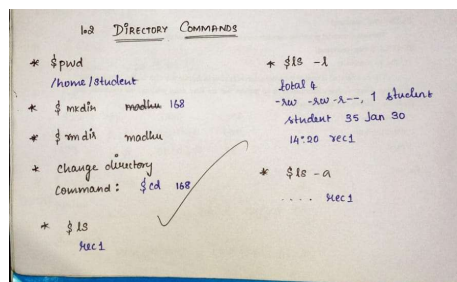 1.2 DIRECTORY COMMANDS
* $pwd
/home/student
* $ mkdir madhu 168
* $ rmdir madhu
* change directory
command : $cd 168
* $ ls
rec1
* $ls -l
total 4
-rw -rw-r--, 1 student
student 35 Jan 30
14:20 rec1
* $ls -a
. . . . rec1